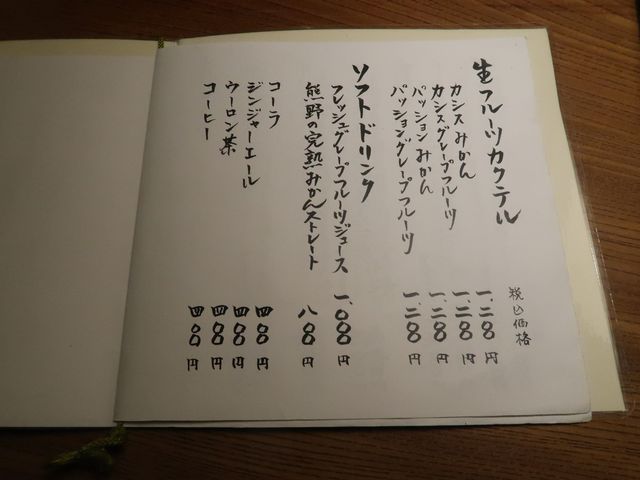 生フルーツカクテル
税込価格
カシスみかん 一、二〇〇円
カシスグレープフルーツ 一、二〇〇円
パッションみかん 一、二〇〇円
パッショングレープフルーツ 一、二〇〇円
ソフトドリンク
フレッシュグレープフルーツジュース 一、〇〇〇円
熊野の完熟みかんストレート 八〇〇円
コーラ 四〇〇円
ジンジャーエール 四〇〇円
ウーロン茶 四〇〇円
コーヒー 四〇〇円